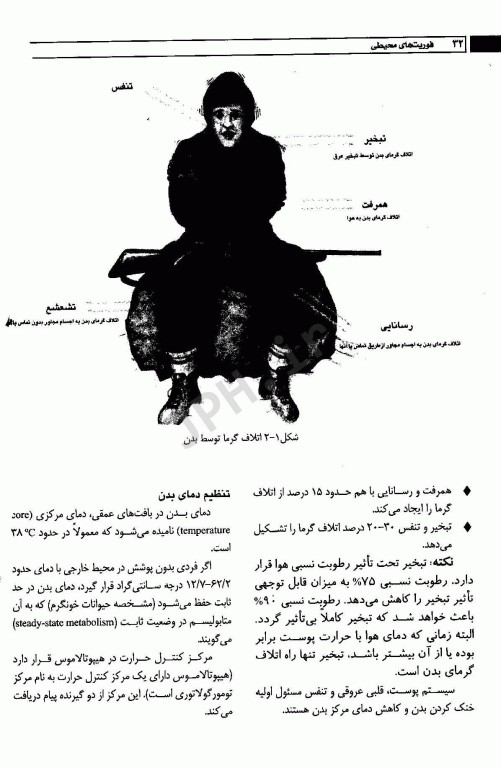 ۳۲ فوریت‌های محیطی
تنفس
تبخیر
اتلاف گرمای بدن توسط تبخیر عرق
همرفت
اتلاف گرمای بدن به هوا
تشعشع
اتلاف گرمای بدن به اجسام مجاور بدون تماس با آنها
رسانایی
اتلاف گرمای بدن به اجسام مجاور از طریق تماس با آنها
شکل۱-۲ اتلاف گرما توسط بدن
♦ همرفت و رسـانایی با هم حـدود ۱۵ درصد از اتلاف
گرما را ایجاد می‌کند.
♦ تبخیر و تنفس ۳۰-۲۰ درصد اتلاف گرما را تشـکیل
می‌دهد.
نکته: تبخیر تحت تأثیر رطوبت نسبی هوا قرار
دارد. رطوبت نسـبی ۷۵% به میزان قابل توجهی
تأثیر تبخیر را کاهش می‌دهد. رطوبت نسبی ۹۰%
باعث خواهد شـد که تبخیر کاملاً بی‌تأثیر گردد.
البته زمانی که دمای هوا با حرارت پوسـت برابر
بوده یا از آن بیشـتر باشـد، تبخیر تنها راه اتلاف
گرمای بدن است.
سیسـتم پوسـت، قلبی عروقی و تنفس مسئول اولیه
خنک کردن بدن و کاهش دمای مرکز بدن هستند.
تنظیم دمای بدن
دمای بـدن در بافت‌های عمقی، دمای مرکزی (core
temperature) نامیده می‌شود که معمولاً در حدود ۳۸ °C
است.
اگر فردی بدون پوشش در محیط خارجی با دمای حدود
۶۲/۲-۱۲/۷ درجه سـانتی‌گراد قرار گیرد، دمای بدن در حد
ثابت حفظ می‌شود (مشـخصه حیوانات خونگرم) که به آن
متابولیسـم در وضعیت ثابـت (steady-state metabolism)
می‌گویند.
مرکـز کنتـرل حـرارت در هیپوتالاموس قـرار دارد
(هیپوتالامـوس دارای یک مرکز کنترل حرارت به نام مرکز
تومورگولاتوری اسـت). این مرکز از دو گیرنده پیام دریافت
می‌کند.
JPH.ir